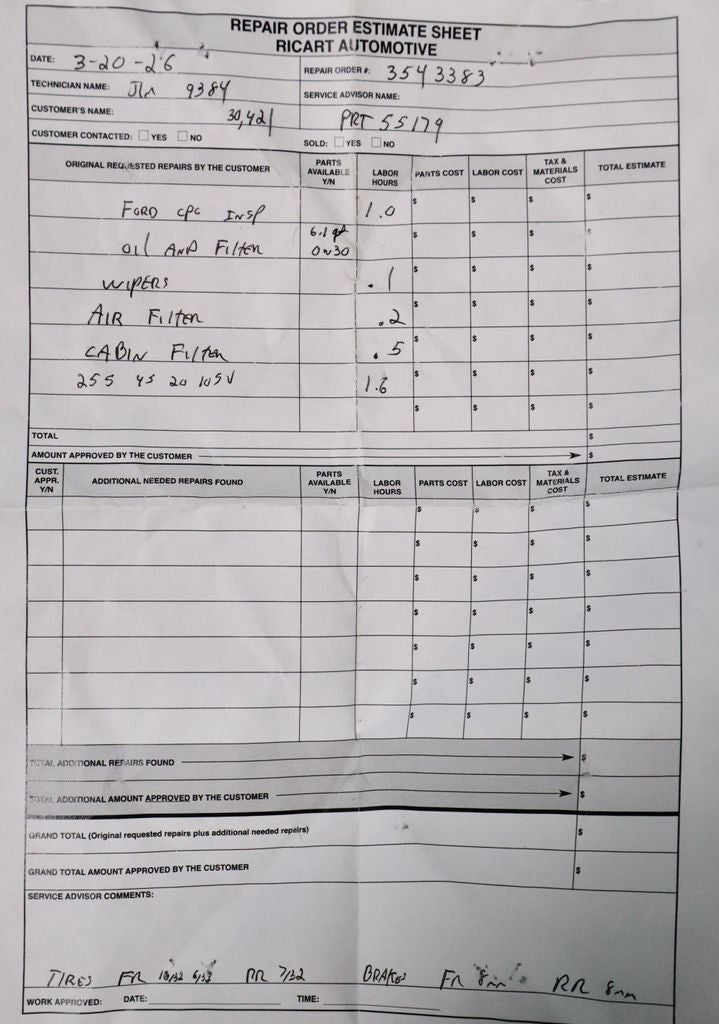 REPAIR ORDER ESTIMATE SHEET
RICART AUTOMOTIVE
DATE: 3-20-26 REPAIR ORDER #: 3543383
TECHNICIAN NAME: 9384 SERVICE ADVISOR NAME:
CUSTOMER'S NAME: 30,421 PRT 55179
CUSTOMER CONTACTED: YES NO SOLD: YES NO
ORIGINAL REQUESTED REPAIRS BY THE CUSTOMER PARTS AVAILABLE Y/N LABOR HOURS PARTS COST LABOR COST TAX & MATERIALS COST TOTAL ESTIMATE
FORD CPC INSP 1.0 $ $ $ $
OIL AND FILTER 6.1 qt 0W30 $ $ $ $
WIPERS .1 $ $ $ $
AIR FILTER .2 $ $ $ $
CABIN FILTER .5 $ $ $ $
255 45 20 105V 1.6 $ $ $ $
$ $ $ $
TOTAL $
AMOUNT APPROVED BY THE CUSTOMER $
CUST. APPR. Y/N ADDITIONAL NEEDED REPAIRS FOUND PARTS AVAILABLE Y/N LABOR HOURS PARTS COST LABOR COST TAX & MATERIALS COST TOTAL ESTIMATE
$ $ $ $
$ $ $ $
$ $ $ $
$ $ $ $
$ $ $ $
$ $ $ $
$ $ $ $
TOTAL ADDITIONAL REPAIRS FOUND $
TOTAL ADDITIONAL AMOUNT APPROVED BY THE CUSTOMER $
GRAND TOTAL (Original requested repairs plus additional needed repairs) $
GRAND TOTAL AMOUNT APPROVED BY THE CUSTOMER $
SERVICE ADVISOR COMMENTS:
TIRES FR 10/32 6/32 RR 7/32 BRAKES FR 8mm RR 8mm
WORK APPROVED: DATE: TIME: